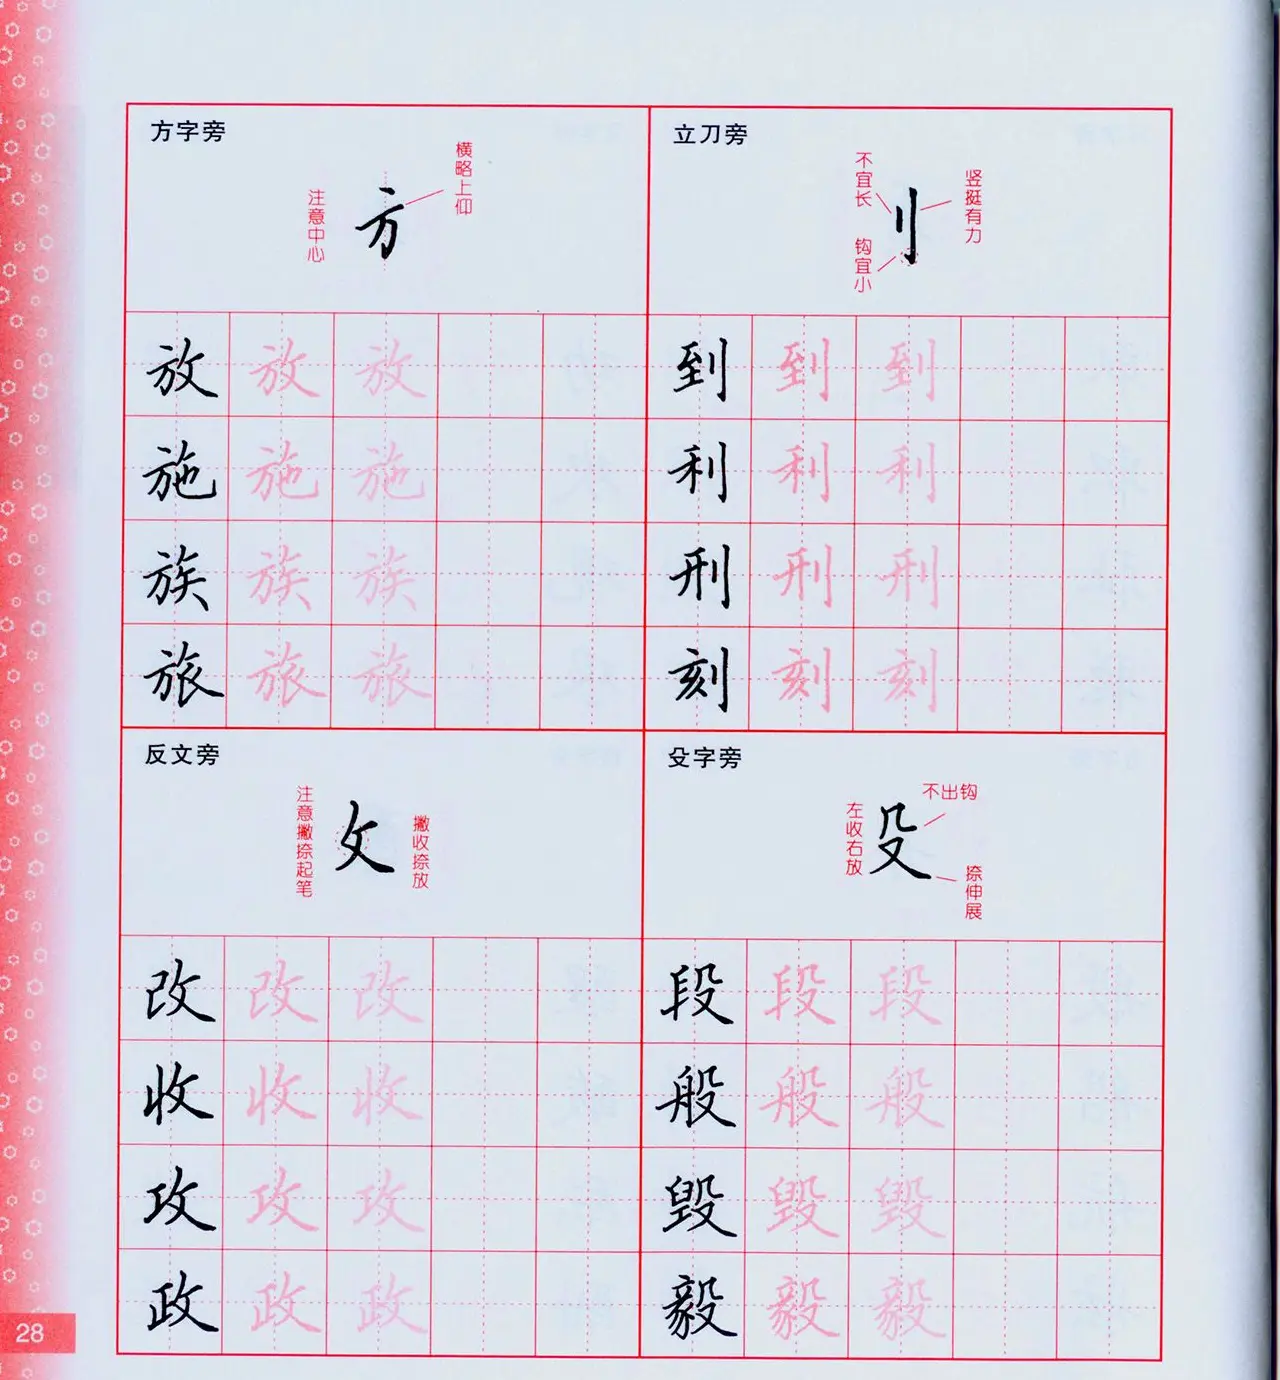 方字旁
横略上仰
注意中心
方
放放放
施施施
族族族
旅旅旅
立刀旁
不宜长
竖挺有力
钩宜小
刂
到到到
利利利
刑刑刑
刻刻刻
反文旁
注意撇捺起笔
撇收捺放
攵
改改改
收收收
攻攻攻
政政政
殳字旁
不出钩
左收右放
捺伸展
殳
段段段
般般般
毁毁毁
毅毅毅
28